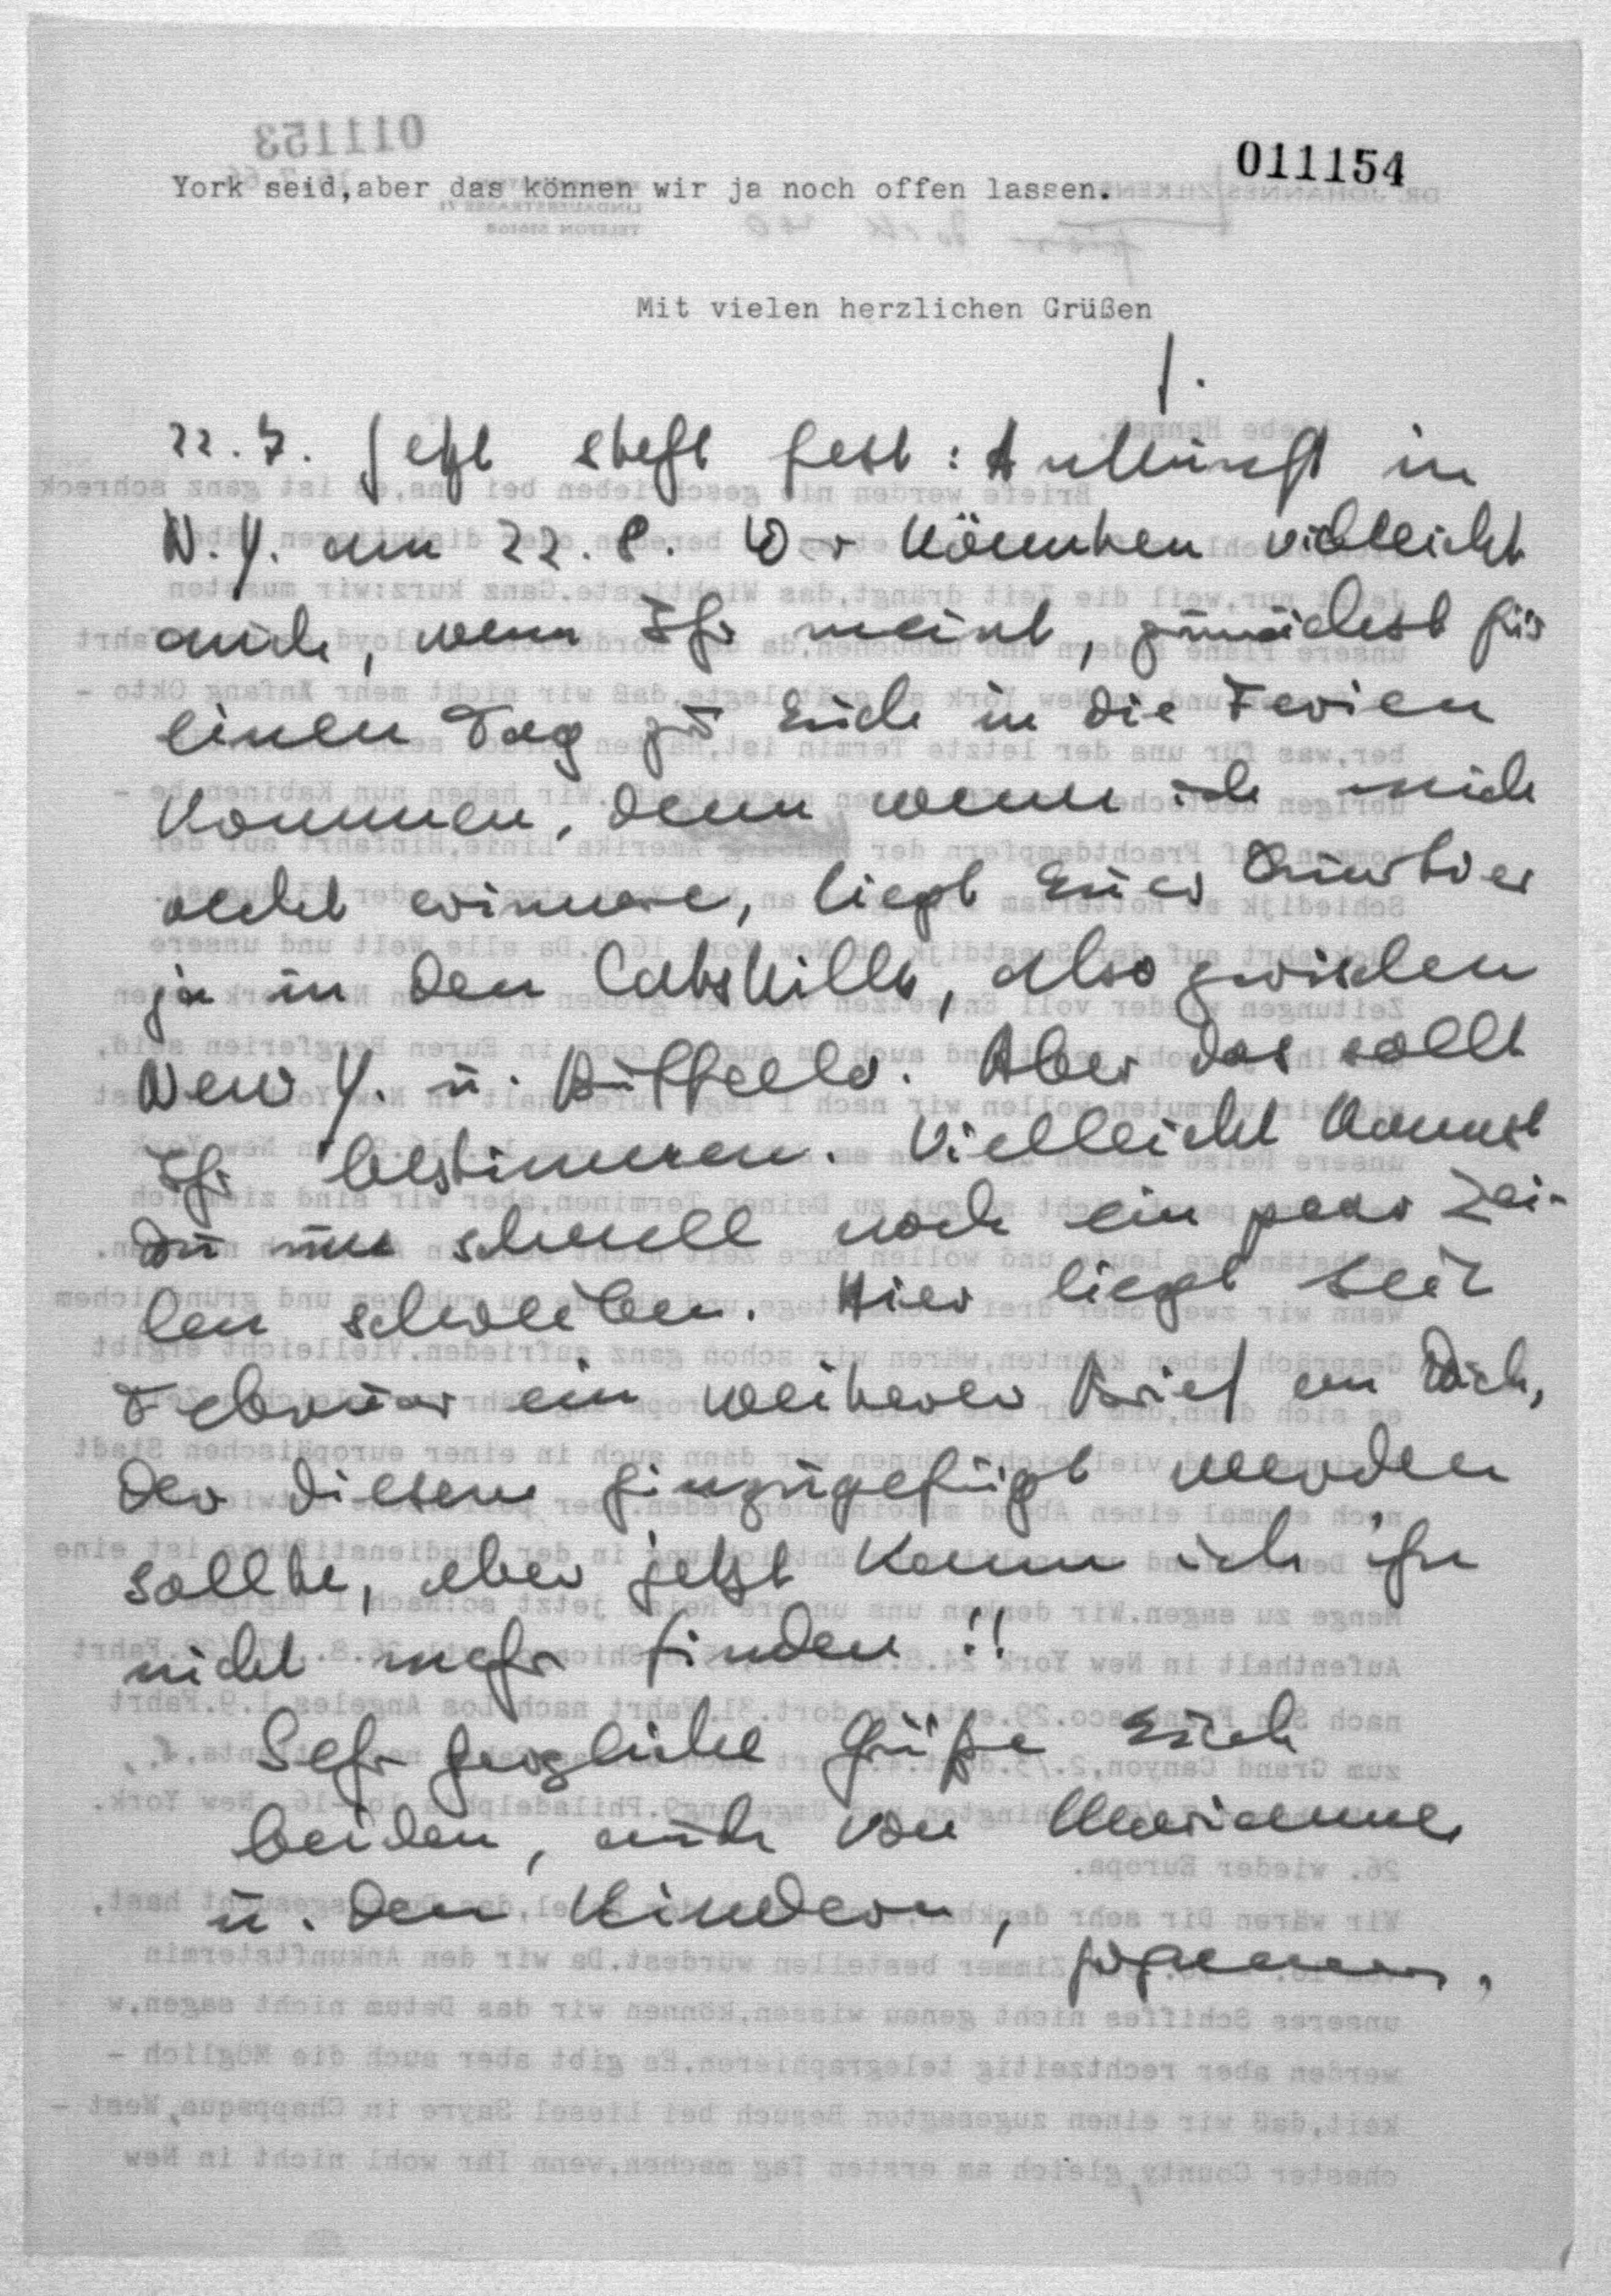 011154
York seid,aber das können wir ja noch offen lassen.
Mit vielen herzlichen Grüßen
22.7. Jetzt steht fest: Ankunft in
N.Y. am 22.8. Wir könnten vielleicht
auch, wenn Ihr meint, zunächst für
einen Tag zu Euch in die Ferien
kommen, denn wenn ich mich
recht erinnere, liegt Euer Quartier
ja in den Catskills, also zwischen
New Y. u. Buffello. Aber das sollt
Ihr bestimmen. Vielleicht kannst
Du uns schnell noch ein paar Zei-
len schreiben. Hier liegt seit
Februar ein weiterer Brief an Dich,
der diesem hinzugefügt werden
sollte, aber jetzt kann ich ihn
nicht mehr finden!!
Sehr herzliche Grüße Euch
beiden, auch von Marianne
u. den Kindern,